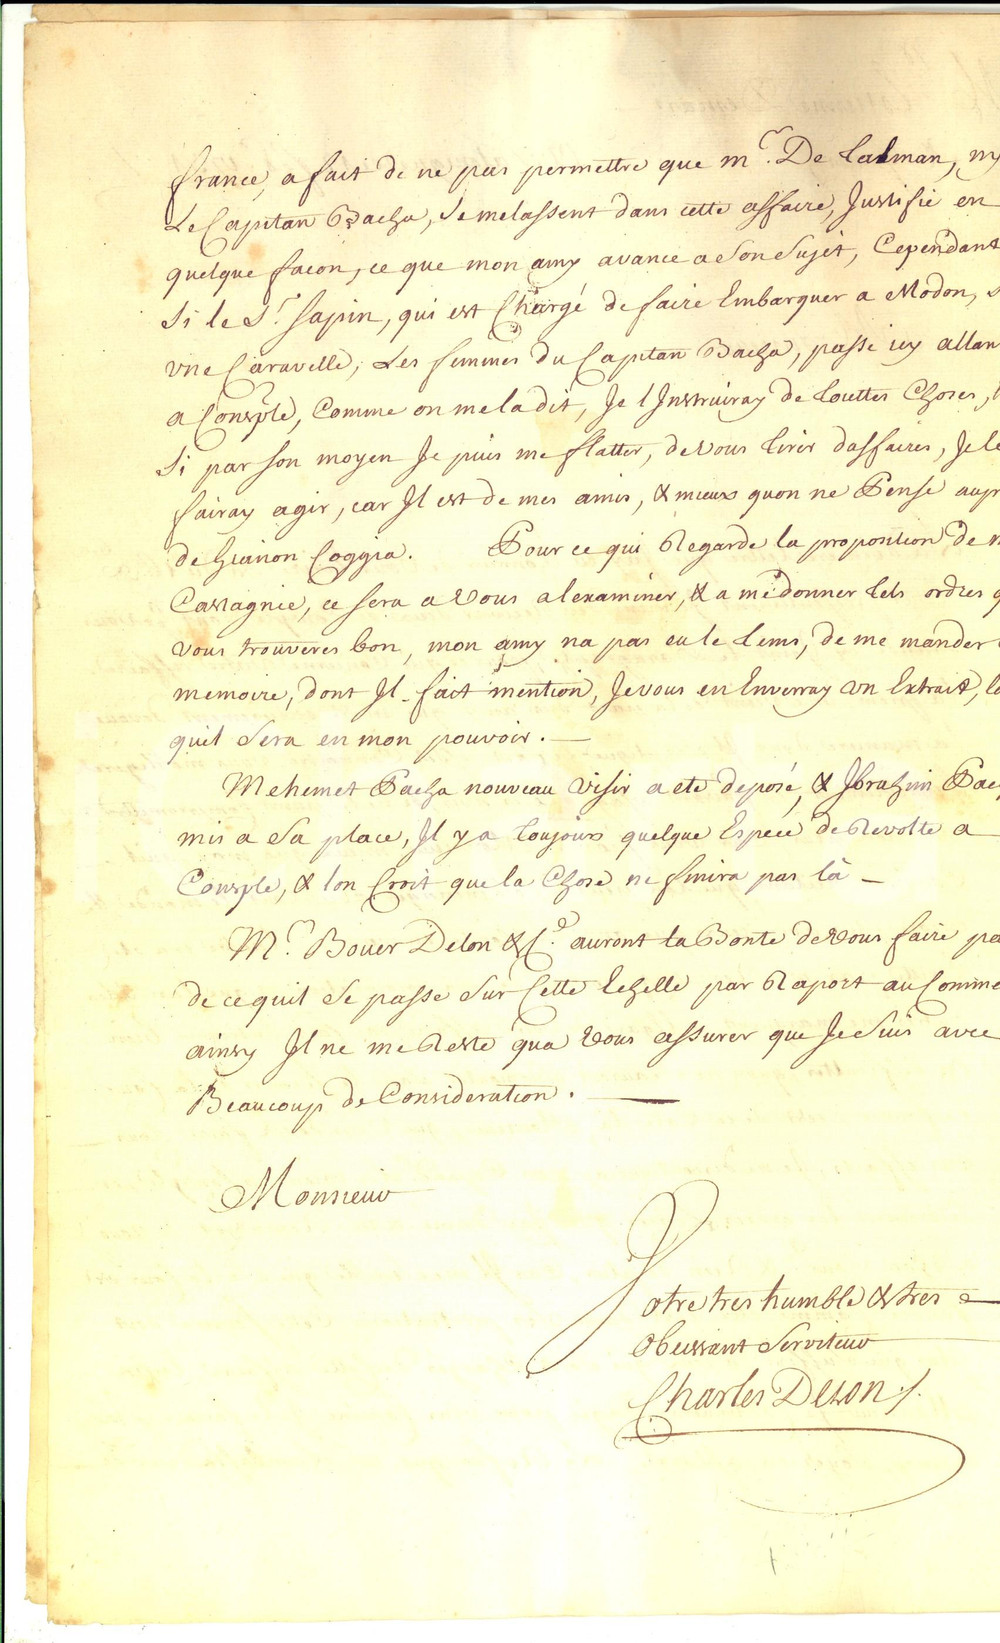 france, a fait de ne pas permettre que m.r De Lalman, ny
Le Capitan Bacha, se melassent dans cette affaire, Justifie en
quelque facon, ce que mon amy avance a Son Sujet, Cependant
Si le S.r Sapin, qui est Chargé de faire Embarquer a Modon, s
vne Caravelle, Les femmes du Capitan Bacha, passe icy allan
a Consple, Comme on me la dit, Je l'Instruiray de touttes Choses,
Si par son moyen Je puis me flatter, de vous tirer daffaires, Je le
fairay agir, car Il est de mes amis, & mieux quon ne Pense aupr
de Gianon Coggia. Pour ce qui Regarde la proposition de m
Castagnie, ce sera a Vous a lexaminer, & a me donner tels ordres q
vous trouveres bon, mon amy na pas eu le tems, de me mander
memoire, dont Il fait mention, Je vous en Enverray un Extrait, lo
quil Sera en mon pouvoir. —
Mehemet Pacha nouveau visir a ete deposé, & Jbrahim Pac
mis a Sa place, Il y a toujours quelque Espece de Revolte a
Consple, & lon Croit que la Chose ne finira pas là —
M.r Bouer Delon & C.e auront la Bonte de Vous faire pa
de ce quil Se passe Sur Cette Echelle par Raport au Comme
ainsy Il ne me Reste qua Vous assurer que Je Suis avec
Beaucoup de Consideration. —
Monsieur
Votre tres humble & tres
Obeissant Serviteur
Charles Delon